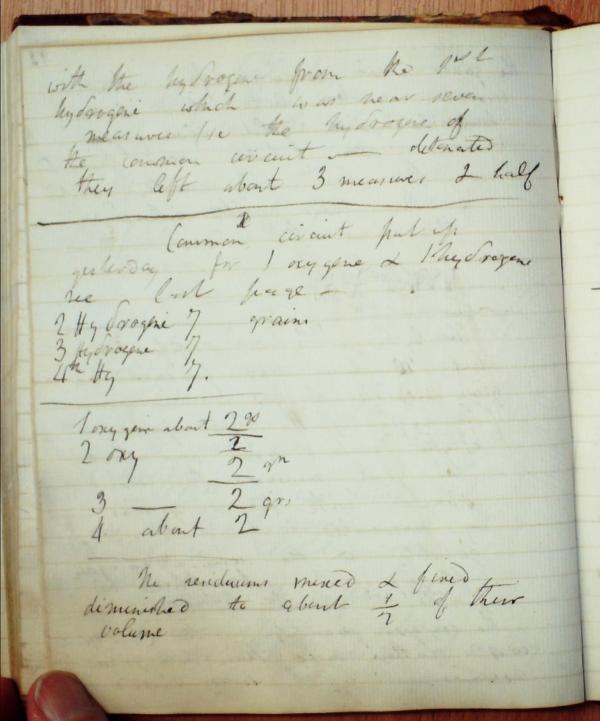 with the hydrogene from the 1st
hydrogene which was near seven
measures ie the hydrogene of
the common circuit — detonated
they left about 3 measures & half
Common circuit put up
yesterday for 1 oxygene & 1 hydrogene
see last page —
2 Hydrogene 7 grains
3 Hydrogene 7
4th Hy 7.
1 oxygene about 2 gs
2 oxy 2
2 grs
3 — 2 grs
4 about 2
The residuums mixed & fired
diminished to about 1/7 of their
volume